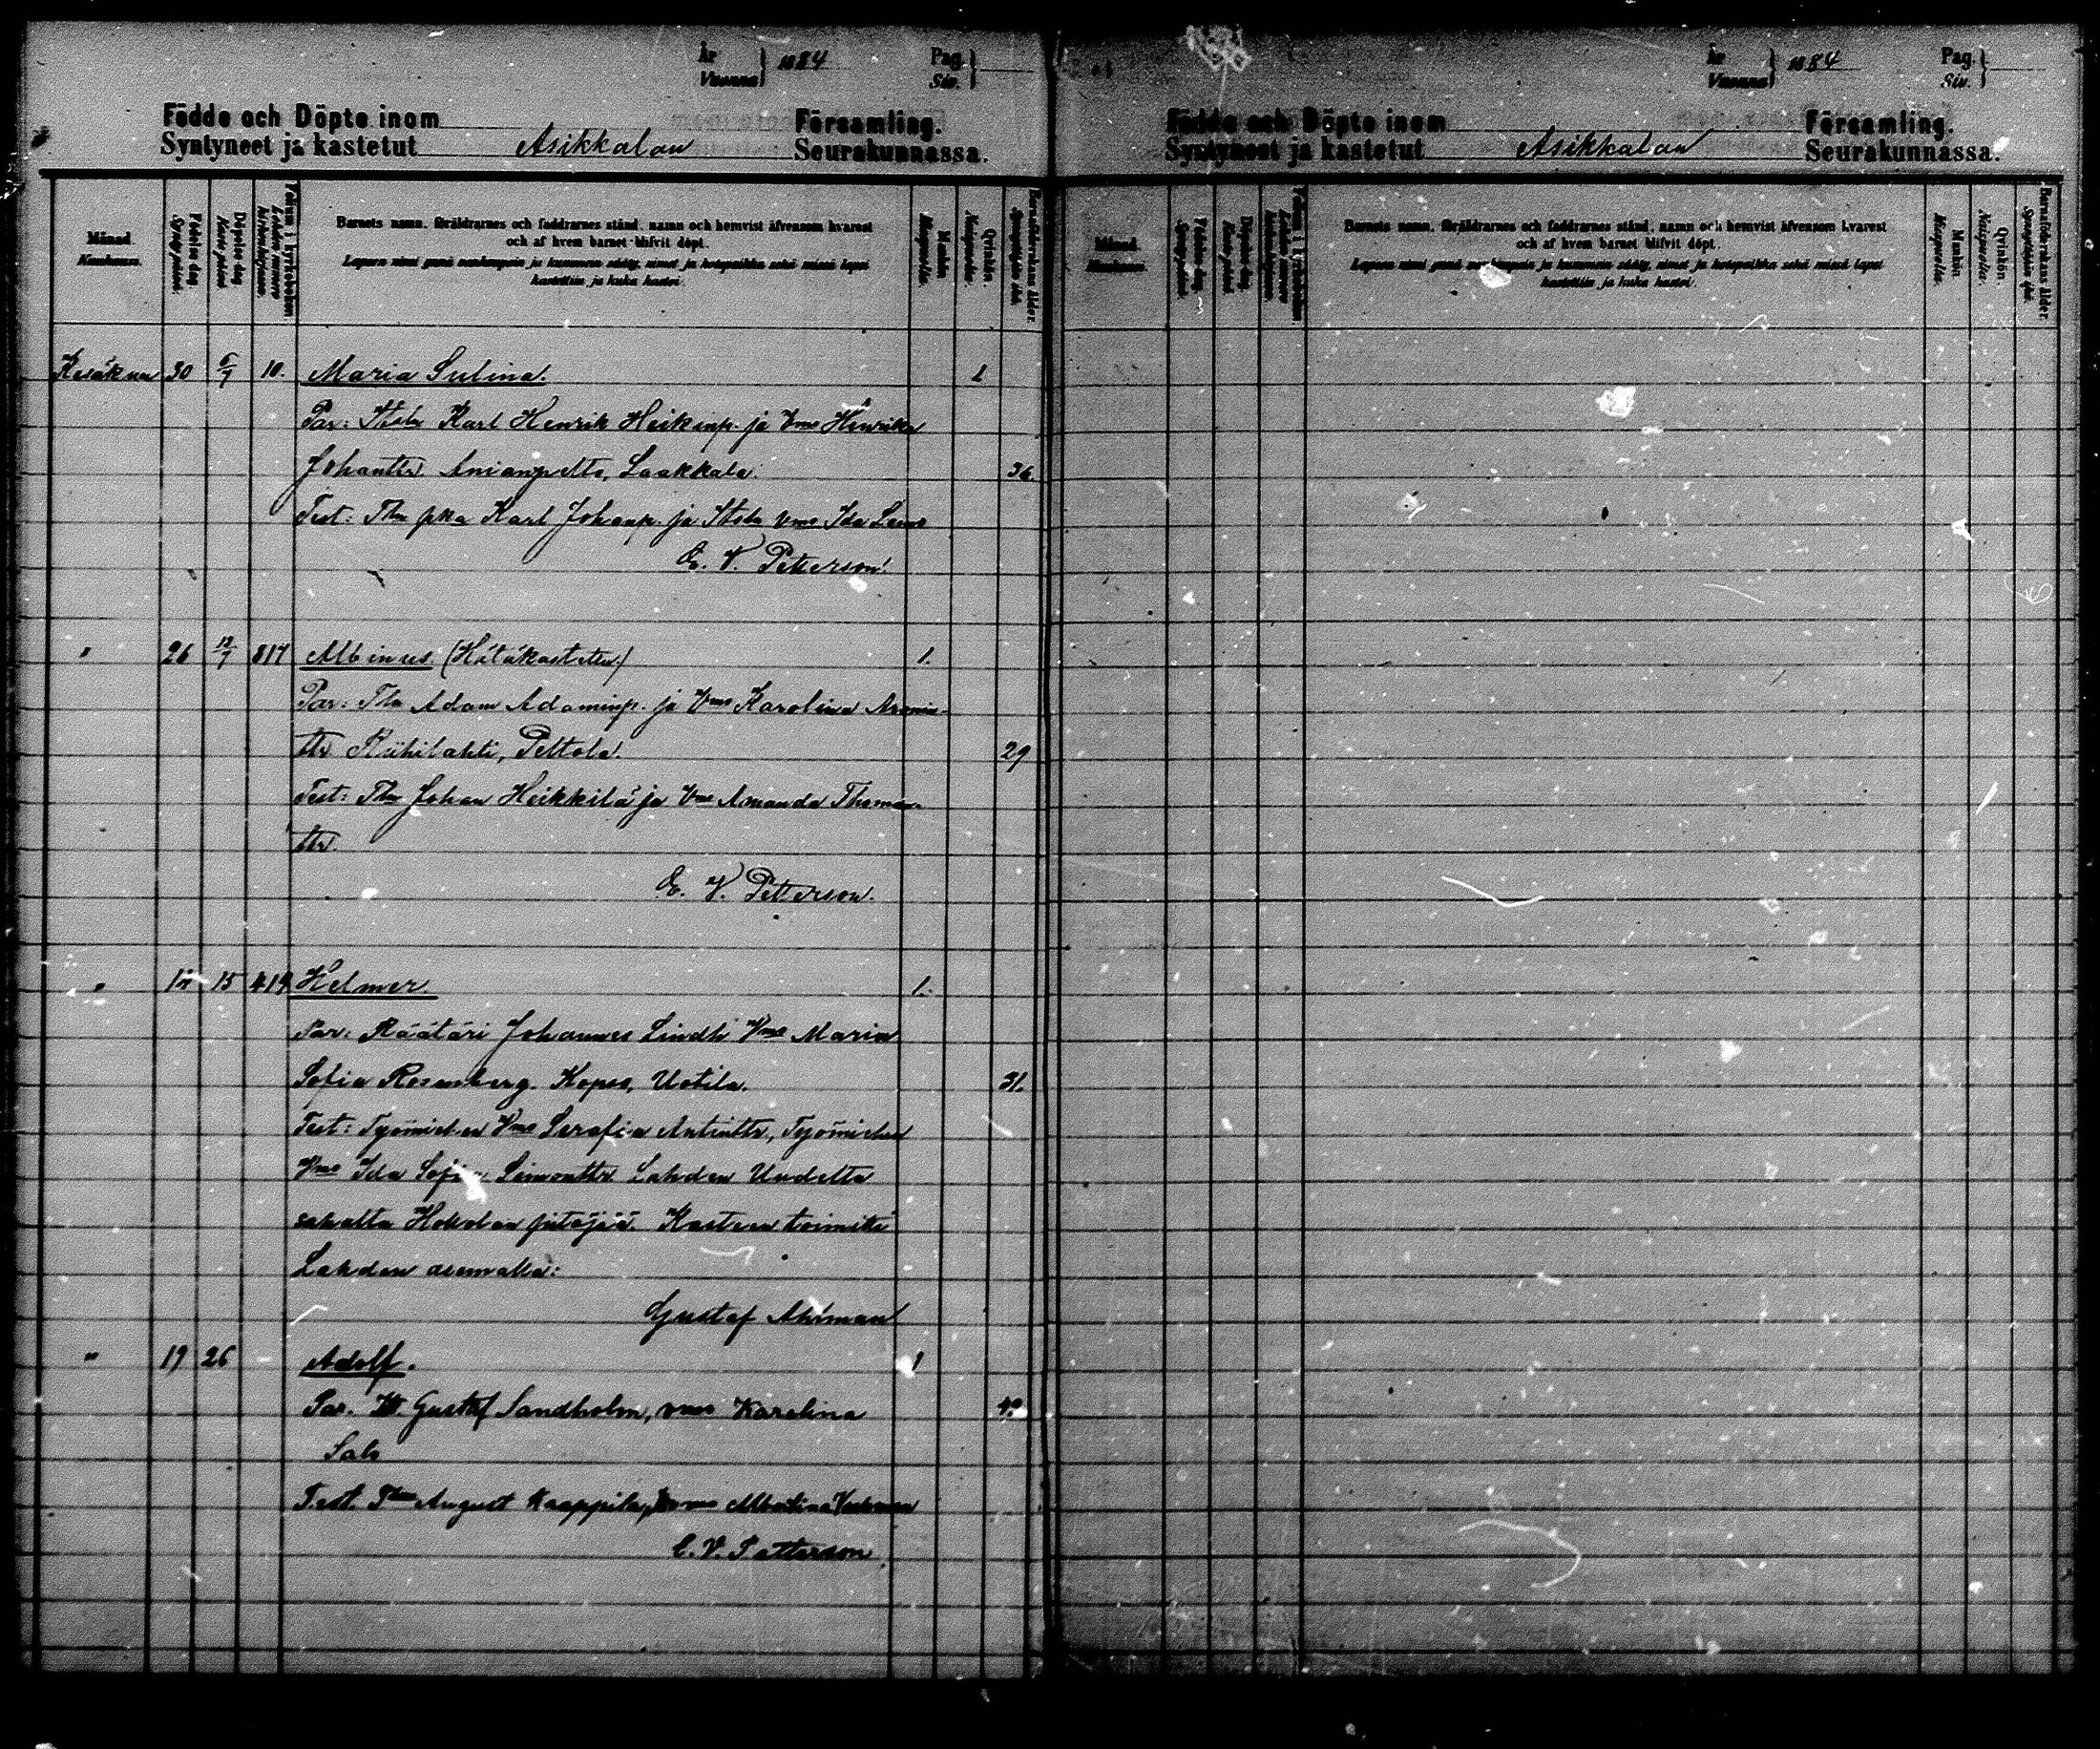 År
Vuonna } 1884
Pag.
Siv. }
Födde och Döpte inom Församling.
Syntyneet ja kastetut Asikkalan Seurakunnassa.
Månad. Kuukausi.
Födelse dag. Syntymäpäivä.
Döpelse dag. Kastepäivä.
Folium i kyrkoboken.
Barnets namn, föräldrarnes och faddrarnes stånd, namn och hemvist äfvensom hvarest
och af hvem barnet blifvit döpt.
Lapsen nimi ynnä vanhempain ja kummein sääty, nimet ja kotopaikka sekä missä lapsi
kastettiin ja kuka kastoi.
Mankön. Miespuolia.
Qvinkön. Naispuolia.
Barnaföderskans ålder.
Kesäkuu 30 6/7 10. Maria Sulina. 1
Par: Karl Henrik Heikinp. ja Vmo Henrika
Johantr. Anianpelto, Laakkala. 36.
Test: Thn pka Karl Johanp. ja Vmo Ida Leena
E. V. Petterson.
" 26 12/7 817 Albinus (Hätäkastettu) 1.
Par: Thn Adam Adaminp. ja Vmo Karolina Aronin-
ttr Riihilahti, Peltola. 29
Test: Thn Johan Heikkilä ja Vmo Amanda Thoman-
ttr.
E. V. Petterson.
" 12 15 419 Helmer. 1.
Par: Räätäri Johannes Lindh Vmo Maria
Sofia Rosenberg. Kopso, Uotila. 31.
Test: Työmiehen Vmo Serafia Antinttr, Työmiehen
Vmo Ida Sofia Simonttr Lahden Uudelta
sahalta Hollolan pitäjää. Kasteen toimitti
Lahden asemalla:
Gustaf Ahlman
" 19 26 - Adolf. 1
Par. Gustaf Sandholm, vmo Karolina 40
Salo
Test. Thn August Kaappila, vmo Albertina
E. V. Petterson
År
Vuonna } 1884
Pag.
Siv. }
Födde och Döpte inom Församling.
Syntyneet ja kastetut Asikkalan Seurakunnassa.
Månad. Kuukausi.
Födelse dag. Syntymäpäivä.
Döpelse dag. Kastepäivä.
Folium i kyrkoboken.
Barnets namn, föräldrarnes och faddrarnes stånd, namn och hemvist äfvensom hvarest
och af hvem barnet blifvit döpt.
Lapsen nimi ynnä vanhempain ja kummein sääty, nimet ja kotopaikka sekä missä lapsi
kastettiin ja kuka kastoi.
Mankön. Miespuolia.
Qvinkön. Naispuolia.
Barnaföderskans ålder.